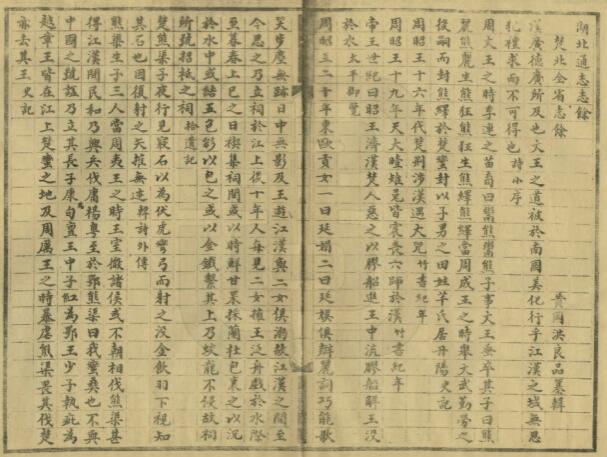 湖北通志志餘
楚北全省志餘
黄岡洪良品纂輯
漢廣德廣所及也文王之道被於南國美化行乎江漢之域無思
犯禮求而不可得也詩小序
周文王之時季連之苗裔曰鬻熊鬻熊子事文王蚤卒其子曰熊
麗熊麗生熊狂熊狂生熊繹熊繹當周成王之時舉文武勤勞之
後嗣而封熊繹於楚蠻封以子男之田姓芈氏居丹陽史記
周昭王十六年伐楚荆涉漢遇大兕竹書紀年
周昭王十九年天大曀雉兔皆震喪六師於漢竹書紀年
帝王世紀曰昭王濟漢楚人惡之以膠船進王中流膠船解王没
於水太平御覽
周昭王二十年東甌貢女一曰延娟二曰延娛俱辯麗詞巧能歌
笑步塵無跡日中無影及王遊江漢與二女俱溺故江漢之間至
今思之乃立祠於江上後十年人每見二女擁王泛舟戲於水際
至暮春上巳之日禊集祠間或以時鮮甘果採蘭杜包裹之以沉
於水中或結五色彩以包之或以金鐵繫其上乃蛟龍不侵故祠
所號招祗之祠拾遺記
楚熊渠子夜行見寢石以為伏虎彎弓而射之没金飲羽下視知
其石也因復射之矢摧無迹韓詩外傳
熊渠生子三人當周夷王之時王室微諸侯或不朝相伐熊渠甚
得江漢間民和乃興兵伐庸楊粤至於鄂熊渠曰我蠻夷也不與
中國之號諡乃立其長子康為句亶王中子紅為鄂王少子執疵為
越章王皆在江上楚蠻之地及周厲王之時暴虐熊渠畏其伐楚
亦去其王史記